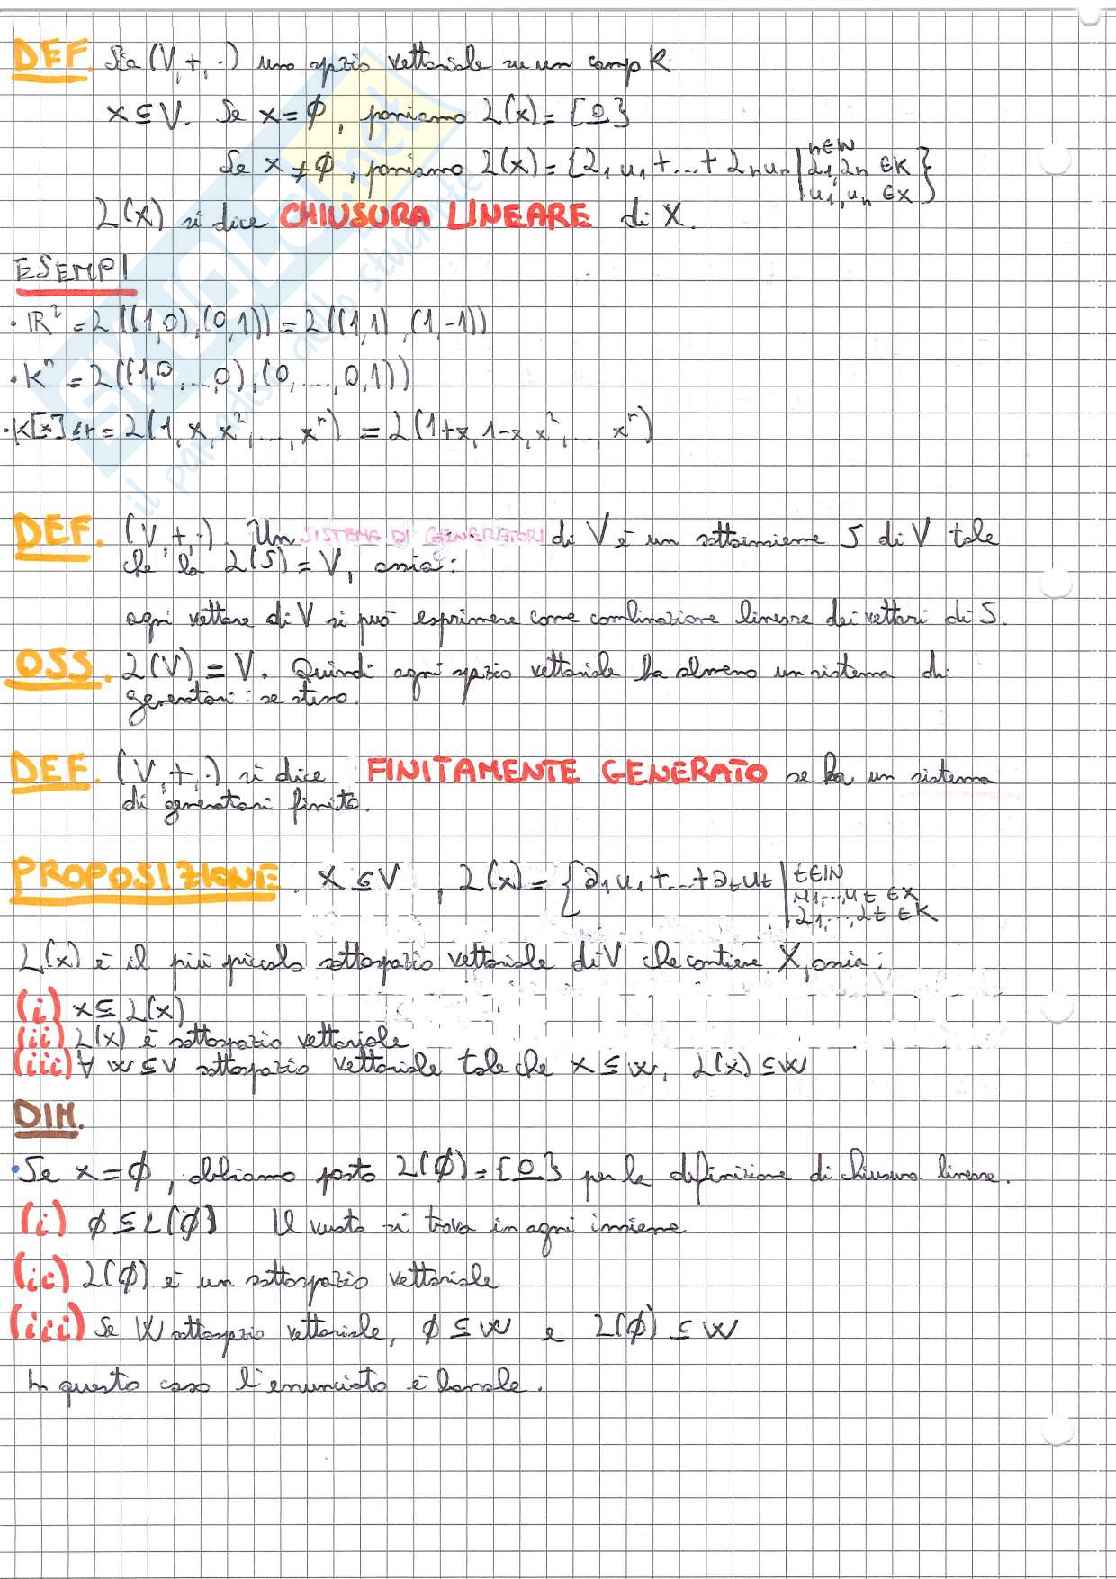 DEF. Sia (V,+,·) uno spazio vettoriale su un campo K
X ⊆ V. Se X = ∅, poniamo L(X) = {0}
Se X ≠ ∅, poniamo L(X) = {a1 u1 + ... + an un | n∈N a1, an ∈K u1, un ∈X}
L(X) si dice CHIUSURA LINEARE di X.
ESEMPI
· R² = L((1,0),(0,1)) = L((1,1),(1,-1))
· Kⁿ = L((1,0,...,0),(0,...,0,1))
· K[x]≤r = L(1, x, x², ..., xʳ) = L(1+x, 1-x, x², ..., xʳ)
DEF. (V,+,·). Un SISTEMA DI GENERATORI di V è un sottoinsieme S di V tale
che la L(S) = V, ossia:
ogni vettore di V si può esprimere come combinazione lineare dei vettori di S.
OSS. L(V) = V. Quindi ogni spazio vettoriale ha almeno un sistema di
generatori: se stesso.
DEF. (V,+,·) si dice FINITAMENTE GENERATO se ha un sistema
di generatori finito.
PROPOSIZIONE. X ⊆ V, L(X) = {a1 u1 + ... + at ut | t∈IN u1,...,ut ∈X a1,...,at ∈K
L(X) è il più piccolo sottospazio vettoriale di V che contiene X, ossia:
(i) X ⊆ L(X)
(ii) L(X) è sottospazio vettoriale
(iii) ∀ W ⊆ V sottospazio vettoriale tale che X ⊆ W, L(X) ⊆ W
DIM.
• Se X = ∅, abbiamo posto L(∅) = {0} per la definizione di chiusura lineare.
(i) ∅ ⊆ L(∅) Il vuoto si trova in ogni insieme
(ii) L(∅) è un sottospazio vettoriale
(iii) Se W sottospazio vettoriale, ∅ ⊆ W e L(∅) ⊆ W
In questo caso l'enunciato è banale.